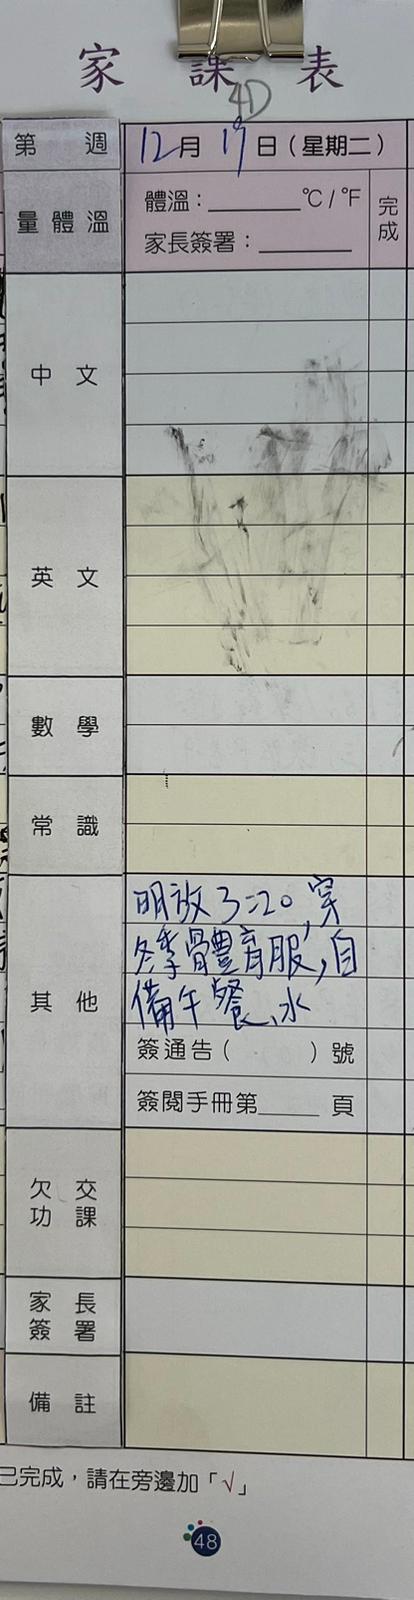 家課表
4D
第 週
12月19日(星期二)
量體溫
體溫:______°C/°F
家長簽署:______
完成
中文
英文
數學
常識
其他
明放3=20,穿
冬季體育服,自
備午餐、水
簽通告( )號
簽閱手冊第____頁
欠交
功課
家長
簽署
備註
已完成,請在旁邊加「√」
48